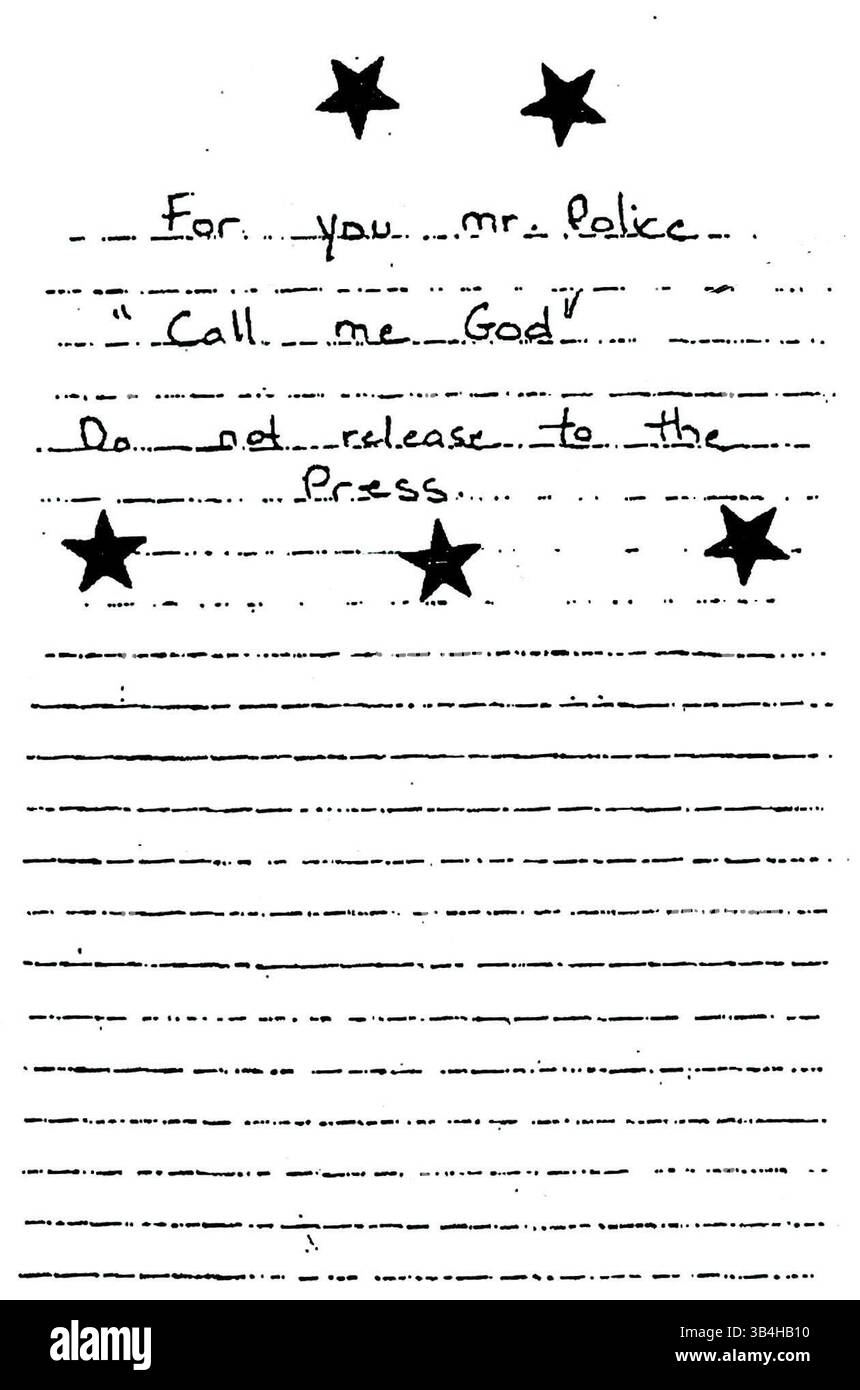 For you mr. Police
"Call me God"
Do not release to the
Press.
a
alamy
Image ID: 3B4HB10
www.alamy.com